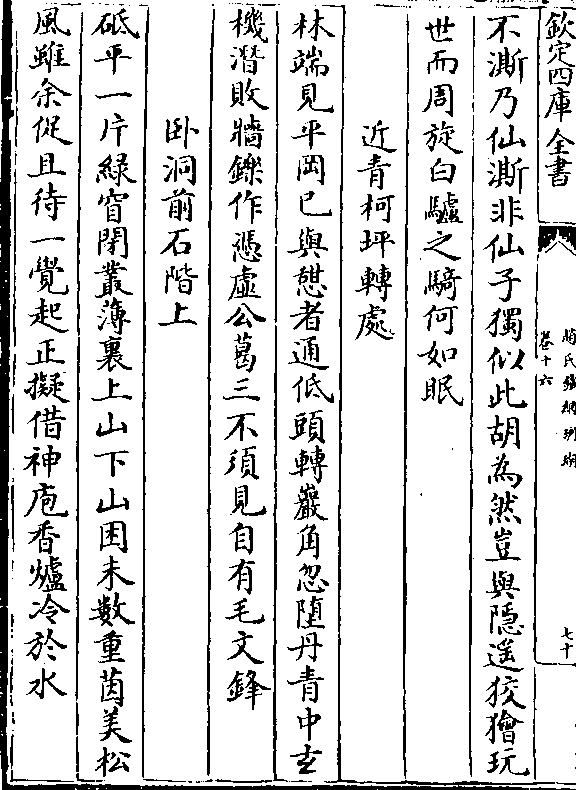 欽定四庫全書
趙氏鐵網珊瑚
卷十六
七十
不澌乃仙澌非仙子獨似此胡為然豈與隱遥狡獪玩
世而周旋白驢之騎何如眠
近青柯坪轉處
林端見平岡已與憇者通低頭轉巖角忽墮丹青中玄
機潛敗牆鑠作憑虛公葛三不須見自有毛文鋒
卧洞前石階上
砥平一片緑窅閉叢薄裏上山下山困未數重茵美松
風雖余促且待一覺起正擬借神庖香爐冷於水